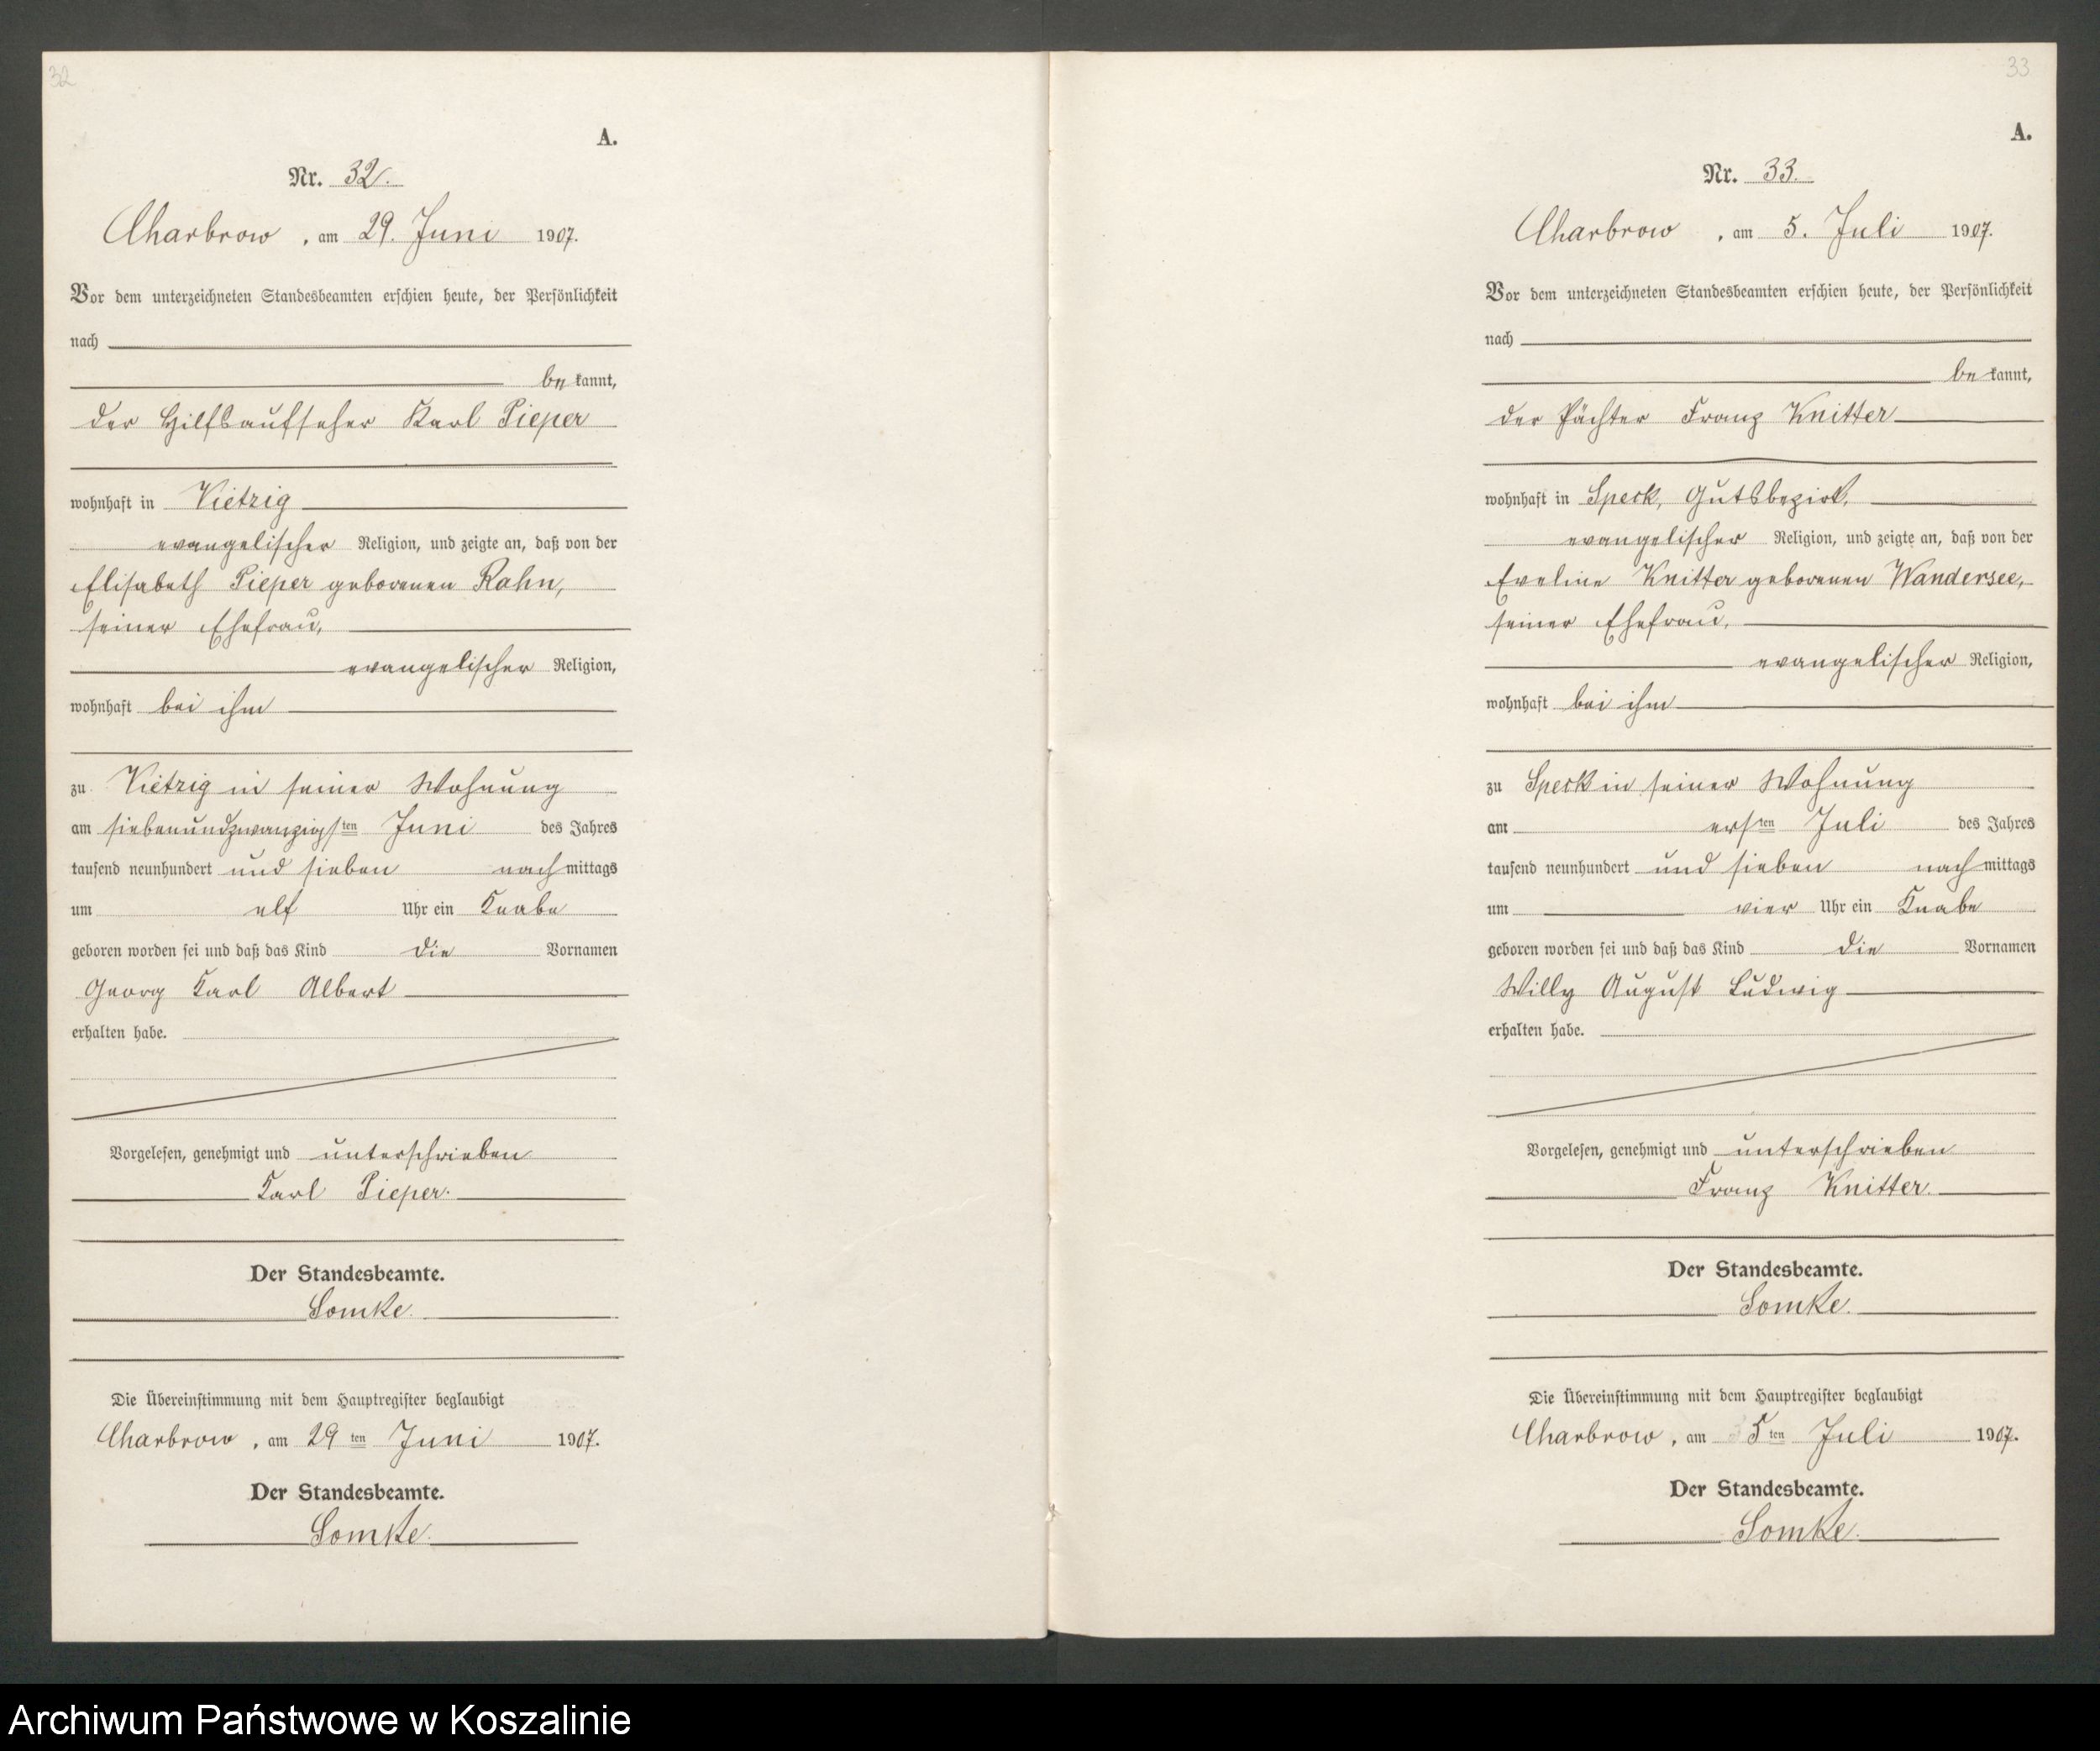 32
A.
Nr. 32.
Charbrow, am 29. Juni 1907.
Vor dem unterzeichneten Standesbeamten erschien heute, der Persönlichkeit
nach
be kannt,
der Hilfsaufseher Karl Pieper
wohnhaft in Vietzig
evangelischer Religion, und zeigte an, daß von der
Elisabeth Pieper geborenen Rahn,
seiner Ehefrau,
evangelischer Religion,
wohnhaft bei ihm
zu Vietzig in seiner Wohnung
am siebenundzwanzigsten Juni des Jahres
tausend neunhundert und sieben nachmittags
um elf Uhr ein Knabe
geboren worden sei und daß das Kind die Vornamen
Georg Karl Albert
erhalten habe.
Vorgelesen, genehmigt und unterschrieben
Karl Pieper.
Der Standesbeamte.
Somke.
Die Übereinstimmung mit dem Hauptregister beglaubigt
Charbrow, am 29ten Juni 1907.
Der Standesbeamte.
Somke.
33
A.
Nr. 33.
Charbrow, am 5. Juli 1907.
Vor dem unterzeichneten Standesbeamten erschien heute, der Persönlichkeit
nach
be kannt,
der Pächter Franz Knitter
wohnhaft in Speck, Gutsbezirk,
evangelischer Religion, und zeigte an, daß von der
Eveline Knitter geborenen Wandersee,
seiner Ehefrau,
evangelischer Religion,
wohnhaft bei ihm
zu Speck in seiner Wohnung
am ersten Juli des Jahres
tausend neunhundert und sieben nachmittags
um vier Uhr ein Knabe
geboren worden sei und daß das Kind die Vornamen
Willy August Ludwig
erhalten habe.
Vorgelesen, genehmigt und unterschrieben
Franz Knitter.
Der Standesbeamte.
Somke.
Die Übereinstimmung mit dem Hauptregister beglaubigt
Charbrow, am 5ten Juli 1907.
Der Standesbeamte.
Somke.
Archiwum Państwowe w Koszalinie